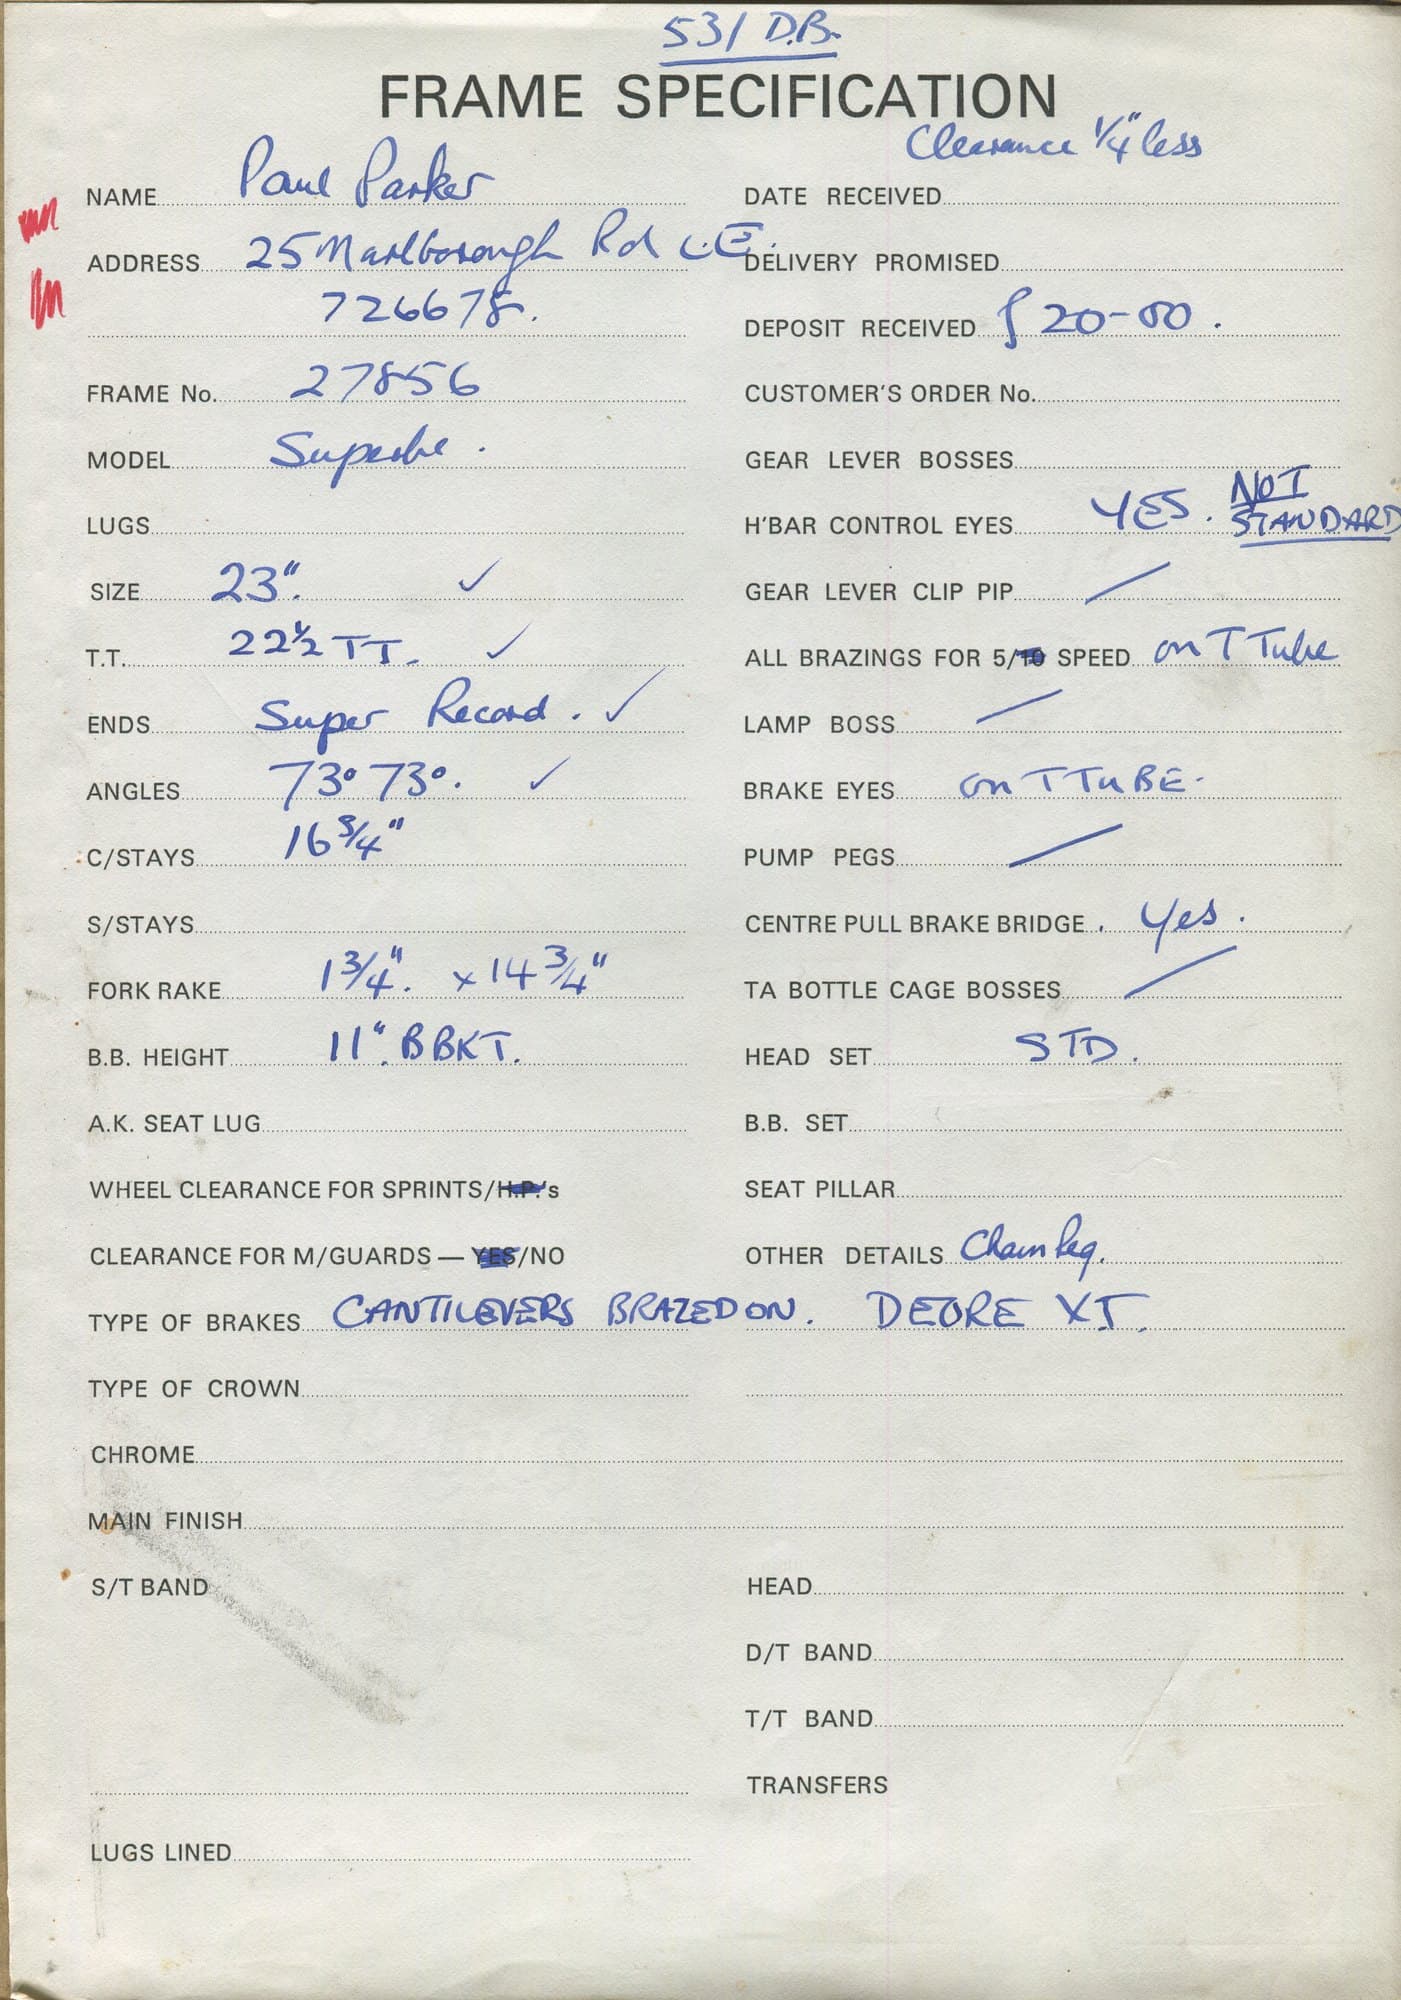 531 D.B.
FRAME SPECIFICATION
Clearance 1/4" less
NAME Paul Parker
ADDRESS 25 Marlborough Rd L.E.
726678.
FRAME No. 27856
MODEL Superbe.
LUGS
SIZE 23". ✓
T.T. 22 1/2 TT. ✓
ENDS Super Record. ✓
ANGLES 73° 73°. ✓
C/STAYS 16 3/4"
S/STAYS
FORK RAKE 1 3/4". x 14 3/4"
B.B. HEIGHT 11". B BKT.
A.K. SEAT LUG
WHEEL CLEARANCE FOR SPRINTS/H.P.'s
CLEARANCE FOR M/GUARDS — YES/NO
TYPE OF BRAKES CANTILEVERS BRAZED ON. DEORE XT.
TYPE OF CROWN
CHROME
MAIN FINISH
S/T BAND
LUGS LINED
DATE RECEIVED
DELIVERY PROMISED
DEPOSIT RECEIVED £20-00.
CUSTOMER'S ORDER No.
GEAR LEVER BOSSES
H'BAR CONTROL EYES YES. NOT STANDARD
GEAR LEVER CLIP PIP /
ALL BRAZINGS FOR 5/10 SPEED on T Tube
LAMP BOSS /
BRAKE EYES on T TUBE.
PUMP PEGS /
CENTRE PULL BRAKE BRIDGE. Yes.
TA BOTTLE CAGE BOSSES /
HEAD SET STD.
B.B. SET
SEAT PILLAR
OTHER DETAILS Chain Peg.
HEAD
D/T BAND
T/T BAND
TRANSFERS